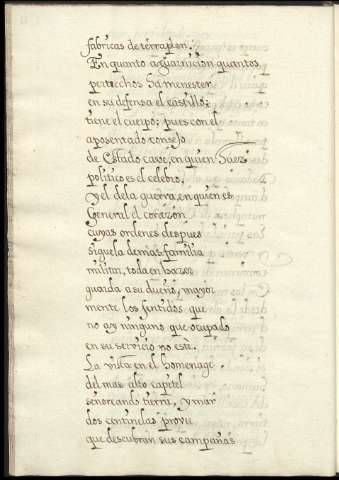 fabricas de terraplen.
En quanto a guarnicion quantos
pertrechos ha menester
en su defensa el castillo;
tiene el cuerpo; pues con el
aposentado consejo
de Estado cave, en quien Juez
politico es el celebro,
y el de la guerra, en quien es
General el corazon
cuyas ordenes despues
sigue la demas familia
militar, toda en hazer
guarda a su dueño, mayor
mente los sentidos que
no ay ninguno que ocupado
en su servicio no estè.
La vista en el homenage
del mas alto capitel
señoreando tierra, y mar
dos centinelas provee
que descubran sus campañas